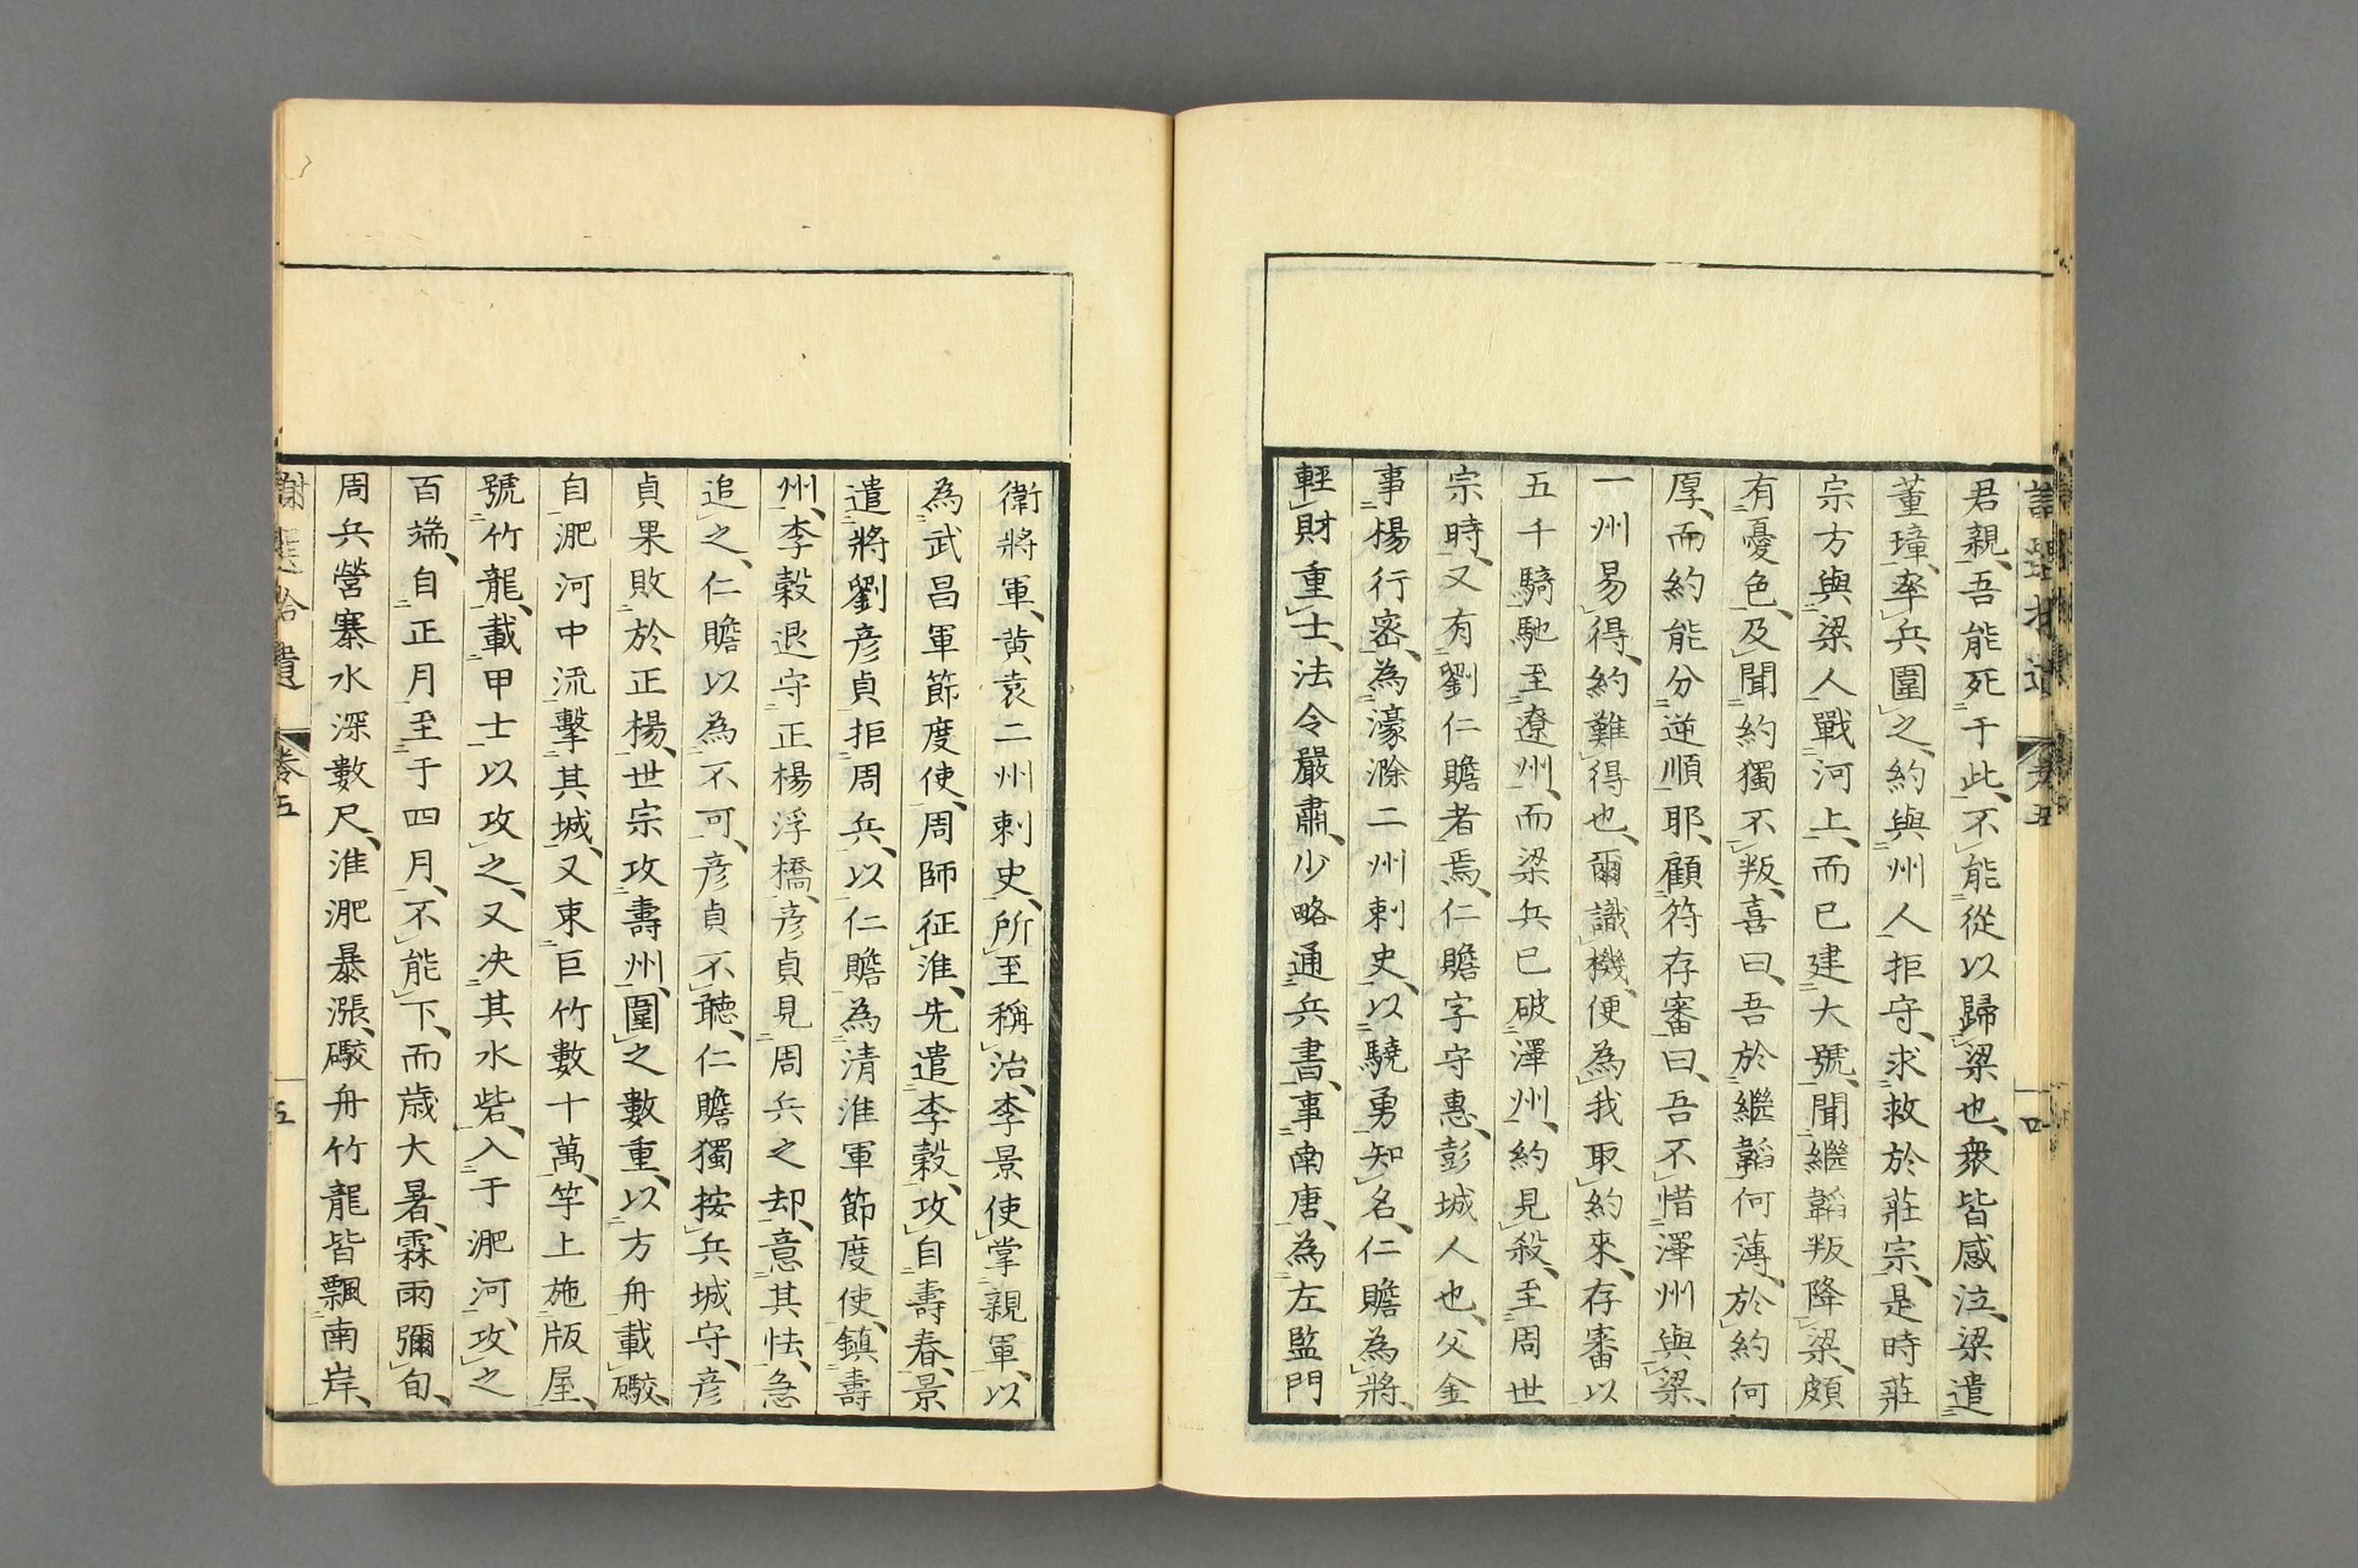 君親、吾能死于此、不能從以歸梁也、衆皆感泣、梁遣
董璋、率兵圍之、約與州人拒守、求救於莊宗、是時莊
宗方與梁人戰河上、而已建大號、聞繼韜叛降梁、頗
有憂色、及聞約獨不叛、喜曰、吾於繼韜何薄、於約何
厚、而約能分逆順耶、顧符存審曰、吾不惜澤州與梁、
一州易得、約難得也、爾識機、便為我取約來、存審以
五千騎馳至遼州、而梁兵已破澤州、約見殺、至周世
宗時、又有劉仁贍者焉、仁贍字守惠、彭城人也、父金
事楊行密、為濠滁二州刺史、以驍勇知名、仁贍為將、
輕財重士、法令嚴肅、少略通兵書、事南唐、為左監門
衛將軍、黄袁二州刺史、所至稱治、李景使掌親軍、以
為武昌軍節度使、周師征淮、先遣李榖、攻自壽春、景
遣將劉彦貞拒周兵、以仁贍為清淮軍節度使、鎮壽
州、李榖退守正楊浮橋、彦貞見周兵之却、意其怯、急
追之、仁贍以為不可、彦貞不聽、仁贍獨按兵城守、彦
貞果敗於正楊、世宗攻壽州、圍之數重、以方舟載礮、
自淝河中流擊其城、又束巨竹數十萬、竿上施版屋、
號竹龍、載甲士以攻之、又决其水砦、入于淝河、攻之
百端、自正月至于四月、不能下、而歳大暑、霖雨彌旬、
周兵營寨水深數尺、淮淝暴漲、礮舟竹龍皆飄南岸、
卷五
五